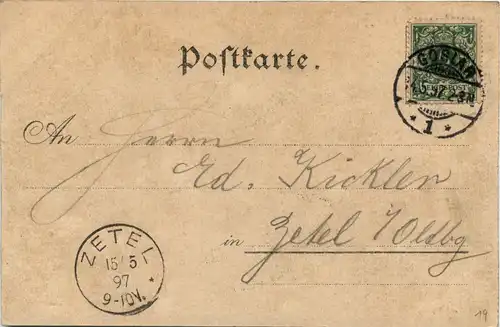 Postkarte.
GOSLAR
15.5.97. 2-3N
* 1 *
An Herrn
Ed. Kickler
in Zetel i/Oldbg
ZETEL
15/5
97
9-10V.
19